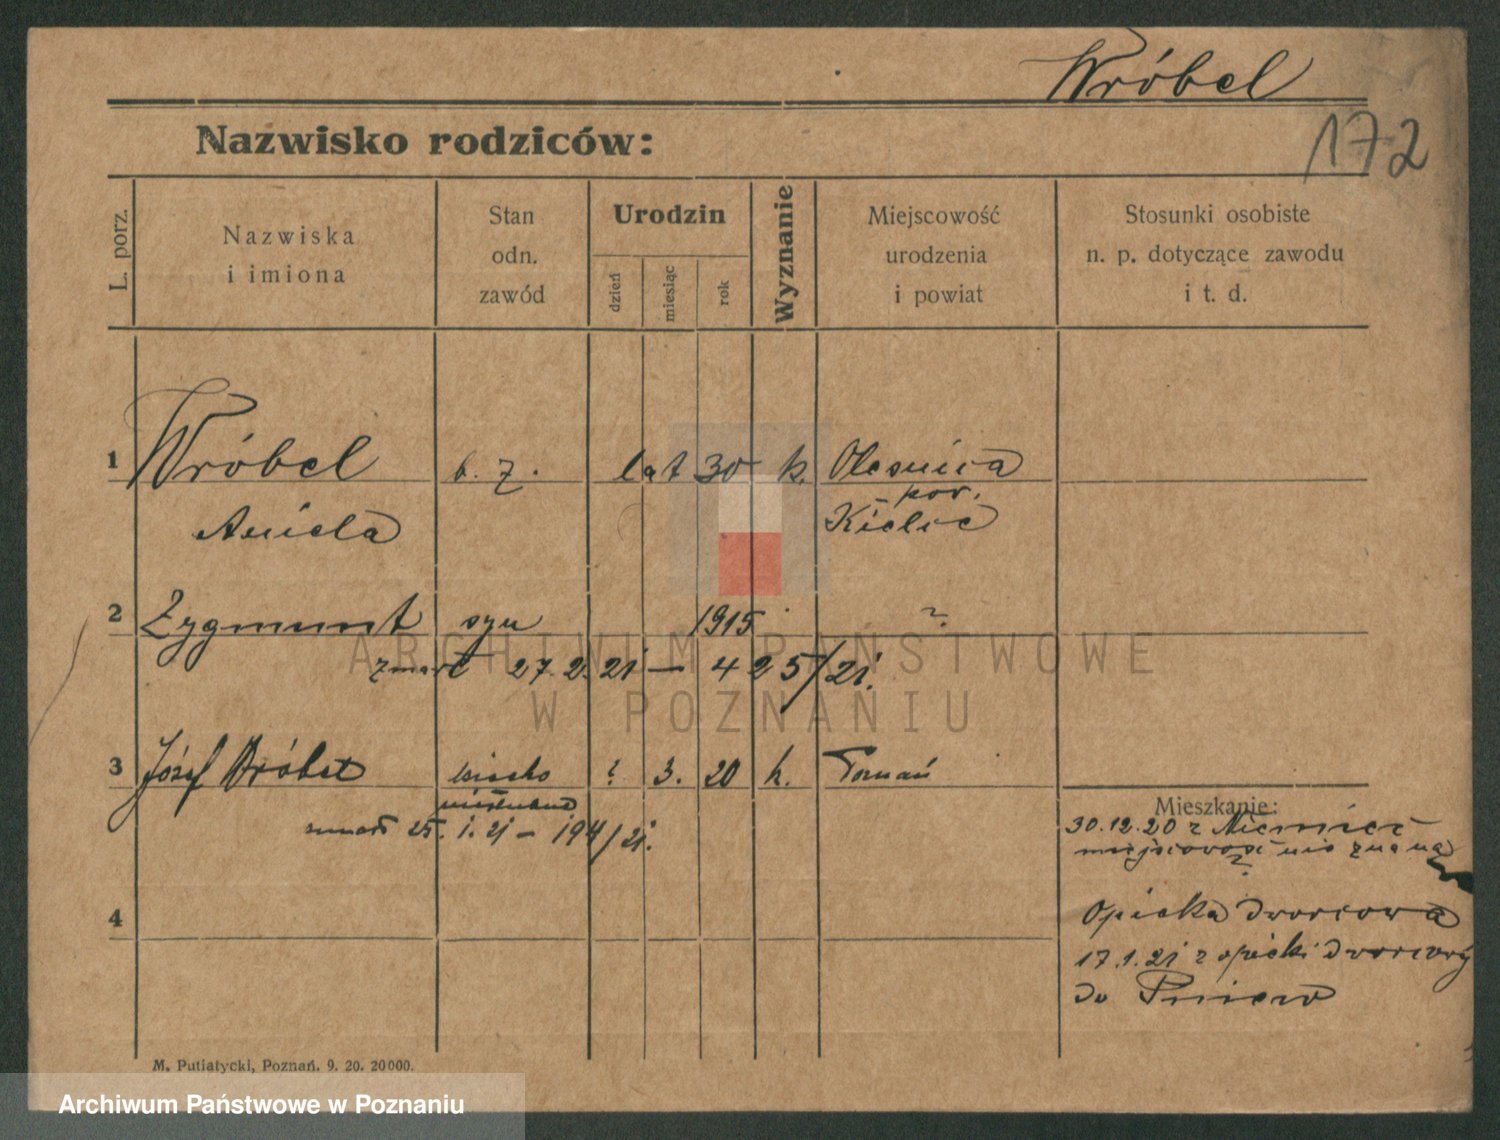 Wróbel
172
Nazwisko rodziców:
L. porz.
Nazwiska
i imiona
Stan
odn.
zawód
Urodzin
dzień
miesiąc
rok
Wyznanie
Miejscowość
urodzenia
i powiat
Stosunki osobiste
n. p. dotyczące zawodu
i t. d.
1 Wróbel b. z. lat 30 k. Olesnica
Aniela pow. Kielce
2 Zygmunt syn 1915 ?
zmarł 27.2.21 – 425/21.
3 Józef Wróbel ? 3. 20 k. Poznań
zmarł 25.1.21 – 194/21.
Mieszkanie:
30.12.20 z Niemiec
miejscowość nie znana
?
Opieka dworcowa
17.1.21 z opieki dworcowej
do Pniew
4
M. Putiatycki, Poznań. 9. 20. 20000.
ARCHIWUM PAŃSTWOWE
W POZNANIU
Archiwum Państwowe w Poznaniu